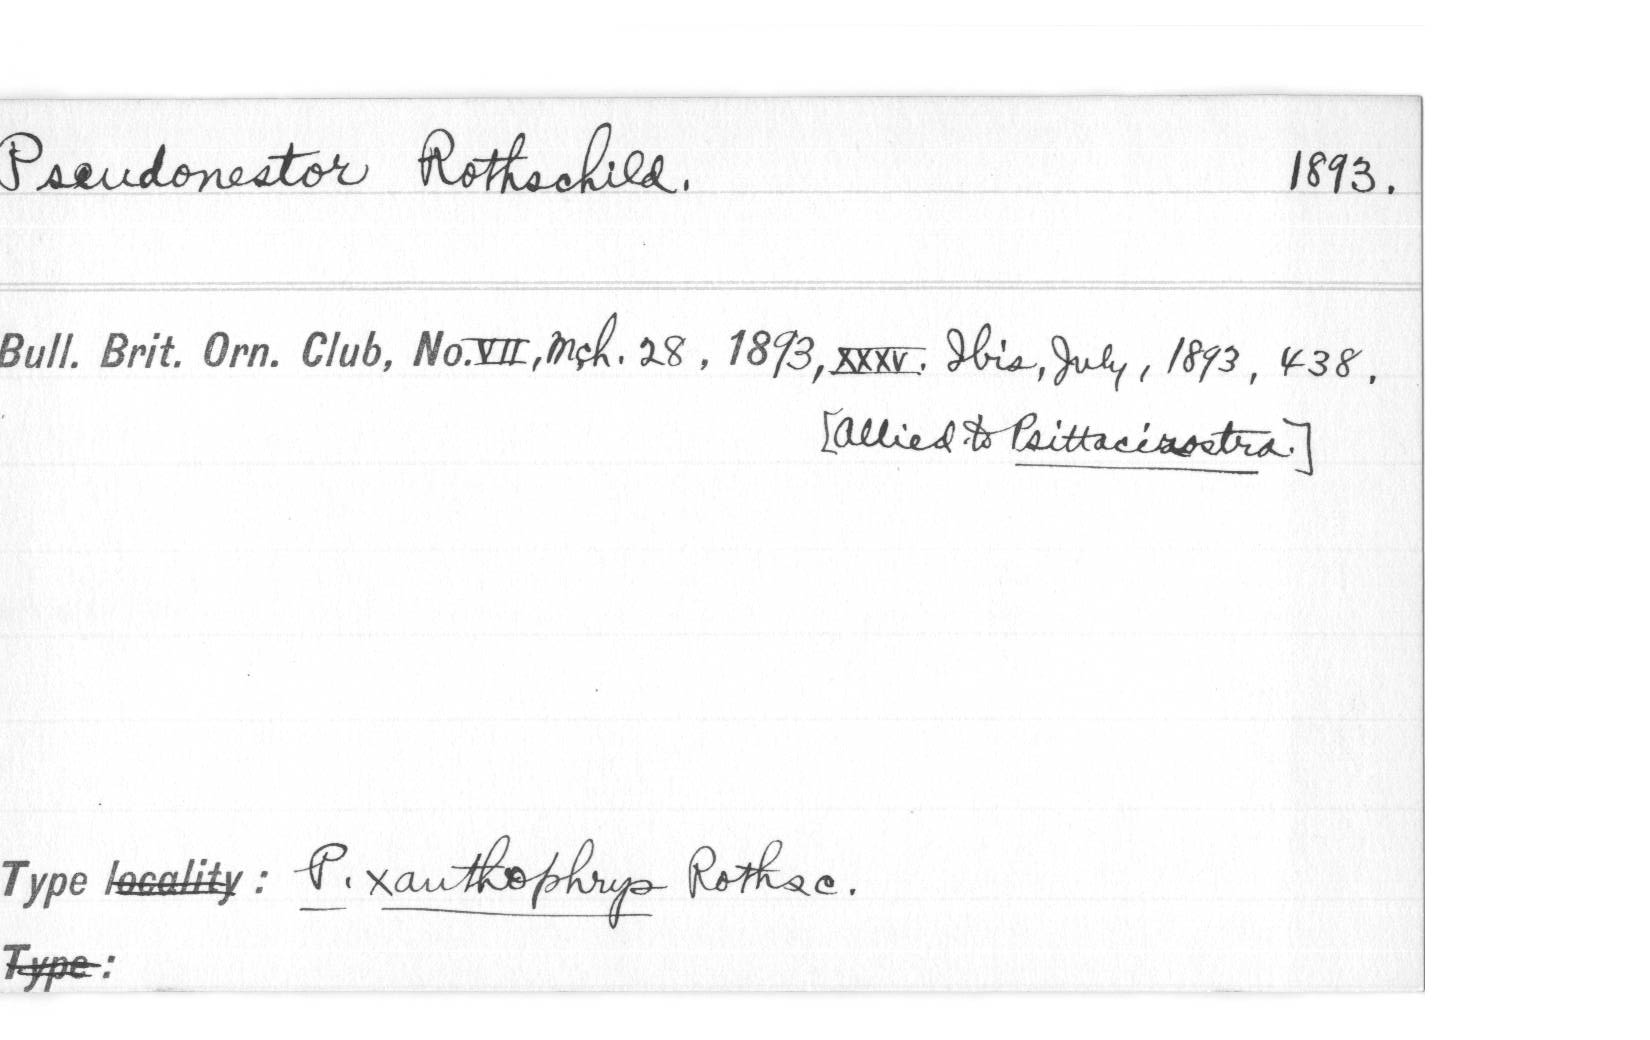 Pseudonestor Rothschild. 1893.
Bull. Brit. Orn. Club, No. VII, Mch. 28, 1893, XXXV. Ibis, July, 1893, 438.
[Allied to Psittacirostra.]
Type locality: P. xanthophrys Rothsc.
Type: